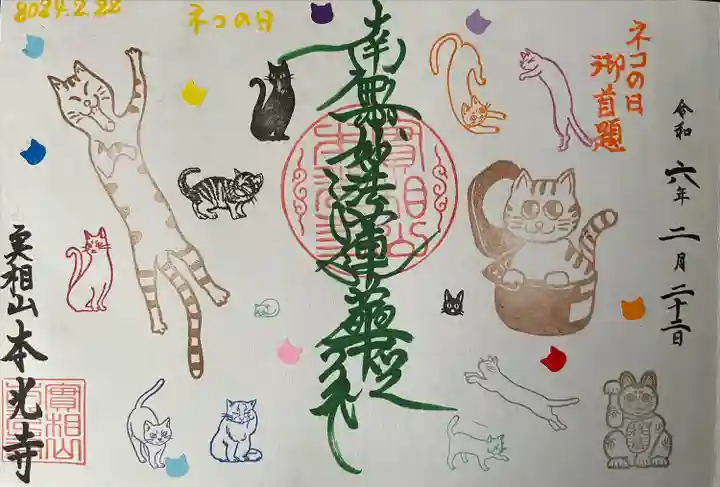 2024.2.22
ネコの日
ネコの日
御首題
令和六年二月二十二日
南無妙法蓮華経
実相山本光寺
實相山